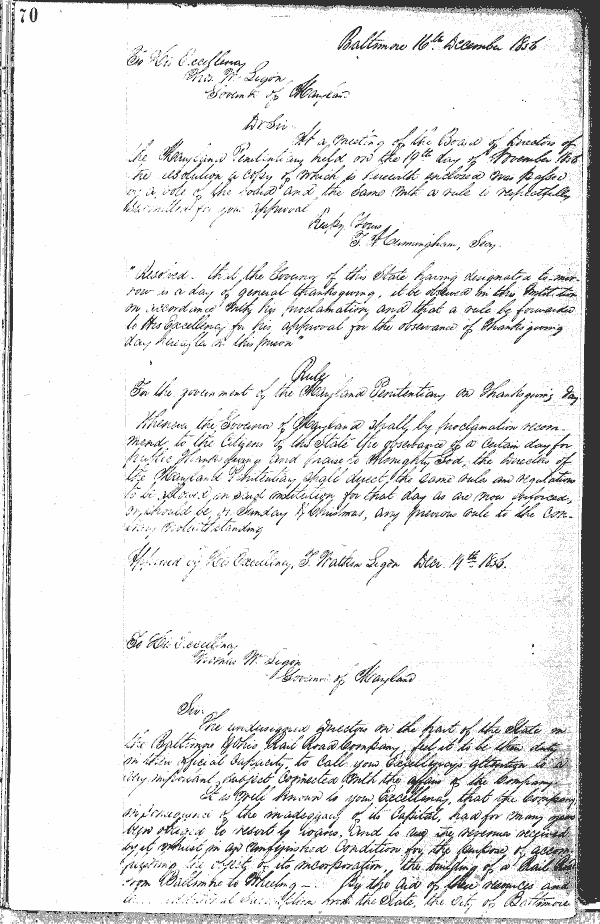 70
Baltimore 16th December 1856
To His Excellency
Thos. W. Ligon
Governor of Maryland
Dr Sir
At a meeting of the Board of Directors of
the Maryland Penitentiary held on the 19th day of November 1856
the resolution a copy of which is herewith enclosed was passed
by a vote of the board and the same with a rule is respectfully
submitted for your approval
Respy Yours
T. H. Cunningham, Secy.
"Resolved. that the Governor of this State having designated to-mor-
row as a day of general thanksgiving, it be observed in this Institution
in accordance with his proclamation, and that a rule be forwarded
to His Excellency for his approval for the observance of Thanksgiving
day hereafter in this prison"
Rule
For the government of the Maryland Penitentiary on Thanksgiving day
Whenever the Governor of Maryland shall by proclamation recom-
mend to the Citizens of this State the observance of a certain day for
public thanksgiving and praise to Almighty God, the Directors of
the Maryland Penitentiary shall direct, the same rules and regulations
to be allowed in said institution for that day as are now enforced,
or should be, on Sunday & Christmas, any previous rule to the Con-
trary notwithstanding
Approved by His Excellency, T. Watkins Ligon Decr. 19th 1856.
To His Excellency
Thomas W. Ligon
Governor of Maryland
Sir
The undersigned Directors on the part of the State in
the Baltimore & Ohio Rail Road Company, feel it to be their duty
in their official Capacity, to call your Excellency's attention to a
very important subject connected with the affairs of the Company
It is well known to your Excellency, that the Company
in consequence of the inadequacy of its Capital, had for many years
been obliged to resort to loans, and to use the revenues received
by it whilst in an unfinished Condition for the purpose of accom-
plishing the object of its incorporation, the building of a Rail Road
from Baltimore to Wheeling - By the aid of these revenues and
additional subscription from the State, the City of Baltimore